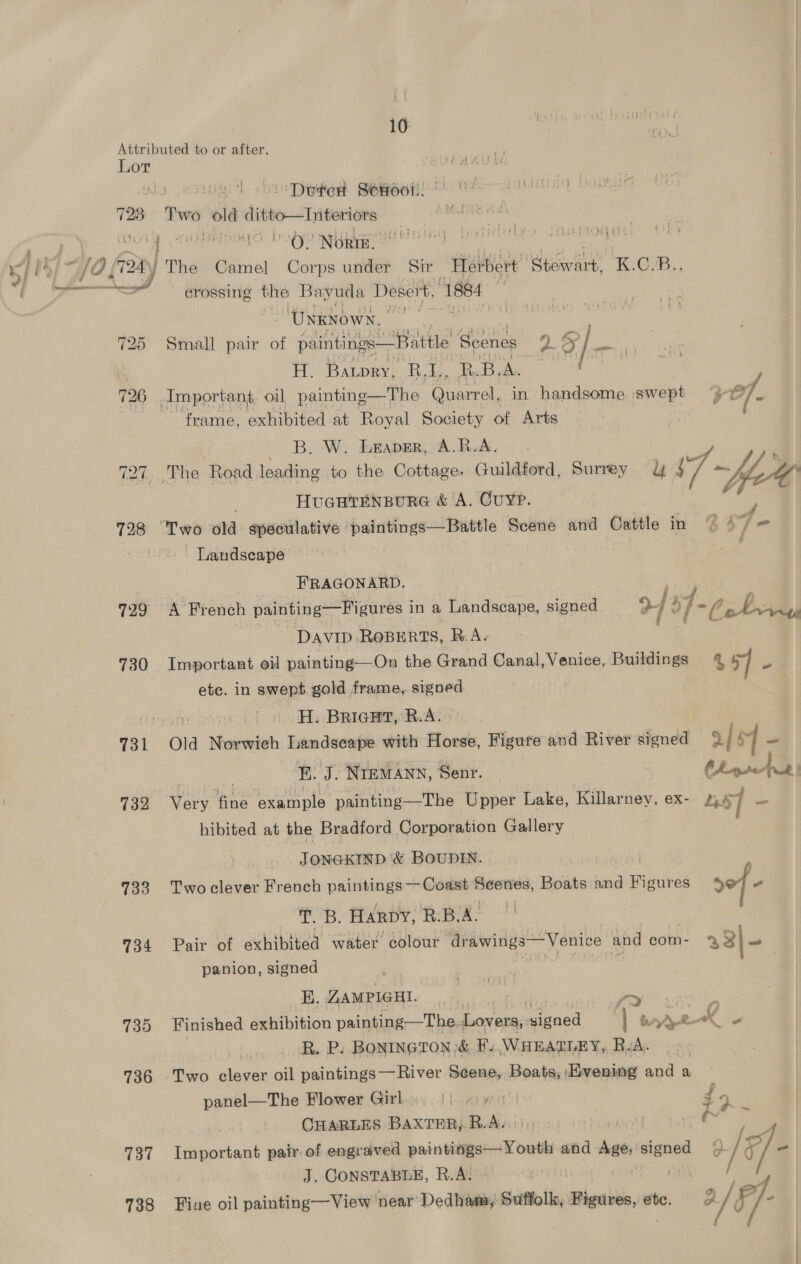 10
Attributed to or after.
Lot
DUTCH SCHOOL.
723 Two old ditto—Interiors
O. NORIE.
724 The Camel Corps under Sir Herbert Stewart, K.C.B.,
crossing the Bayuda Desert, 1884
UNKNOWN.
725 Small pair of paintings—Battle Scenes
H. BALDRY, R.I., R.B.A.
726 Important oil painting—The Quarrel, in handsome swept
frame, exhibited at Royal Society of Arts
B. W. LEADER, A.R.A.
727 The Road leading to the Cottage, Guildford, Surrey
HUGHTENBURG & A. CUYP.
728 Two old speculative paintings—Battle Scene and Cattle in
Landscape
FRAGONARD.
729 A French painting—Figures in a Landscape, signed
DAVID ROBERTS, R.A.
730 Important oil painting—On the Grand Canal, Venice, Buildings
etc. in swept gold frame, signed
H. BRIGHT, R.A.
731 Old Norwich Landscape with Horse, Figure and River signed
E. J. NIEMANN, Senr.
732 Very fine example painting—The Upper Lake, Killarney, ex-
hibited at the Bradford Corporation Gallery
JONGKIND & BOUDIN.
733 Two clever French paintings—Coast Scenes, Boats and Figures
T. B. HARDY, R.B.A.
734 Pair of exhibited water colour drawings—Venice and com-
panion, signed
E. ZAMPIGHI.
735 Finished exhibition painting—The Lovers, signed
R. P. BONINGTON & F. WHEATLEY, R.A.
736 Two clever oil paintings—River Scene, Boats, Evening and a
panel—The Flower Girl
CHARLES BAXTER, R.A.
737 Important pair of engraved paintings—Youth and Age, signed
J. CONSTABLE, R.A.
738 Fine oil painting—View near Dedham, Suffolk, Figures, etc.